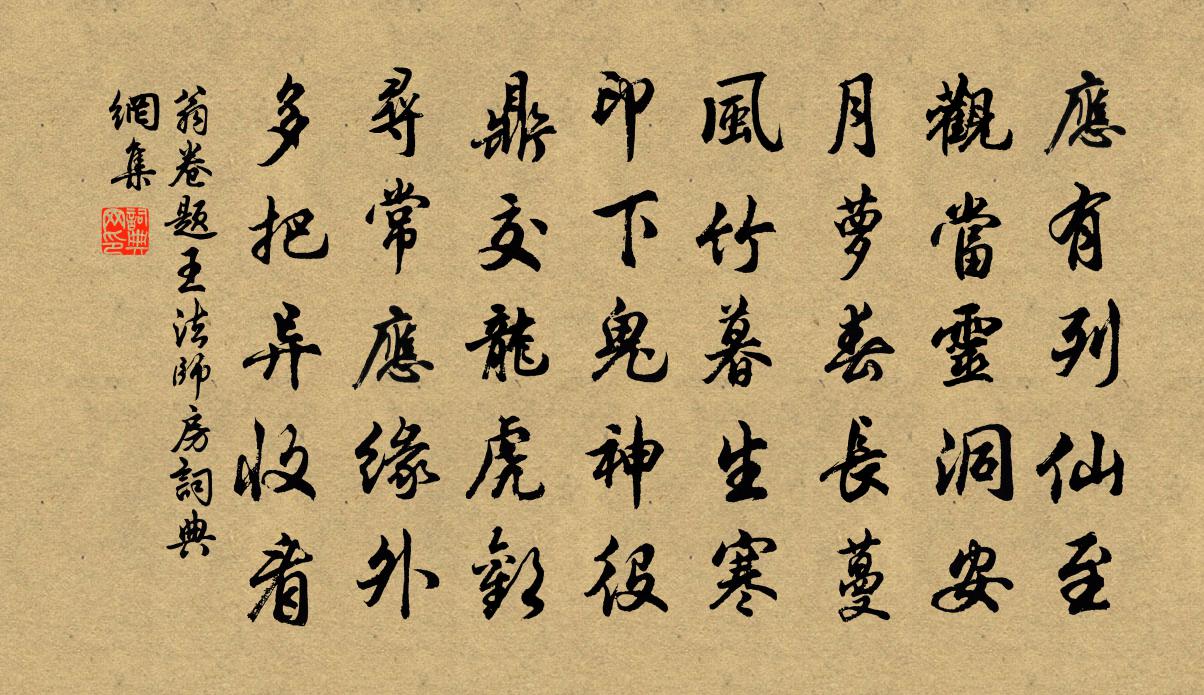 應有列仙至
觀當靈洞安
月萝春長蔓
風竹暮生寒
印下鬼神役
鼎交龍虎歡
尋常應緣外
多把异收看
翁卷题王法師房詞典
網集
詞典
网印